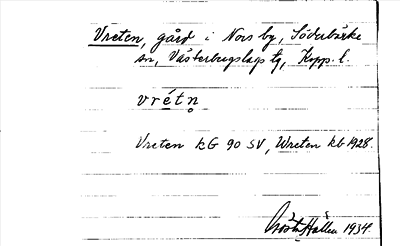 Vreten, gård i Nors by, Söderbärke
sn, Västerbergslags tg, Kopp. l.
vrétn̥
Vreten kG 90 SV, Wreten kb 1928.
Gösta Hallén 1934.